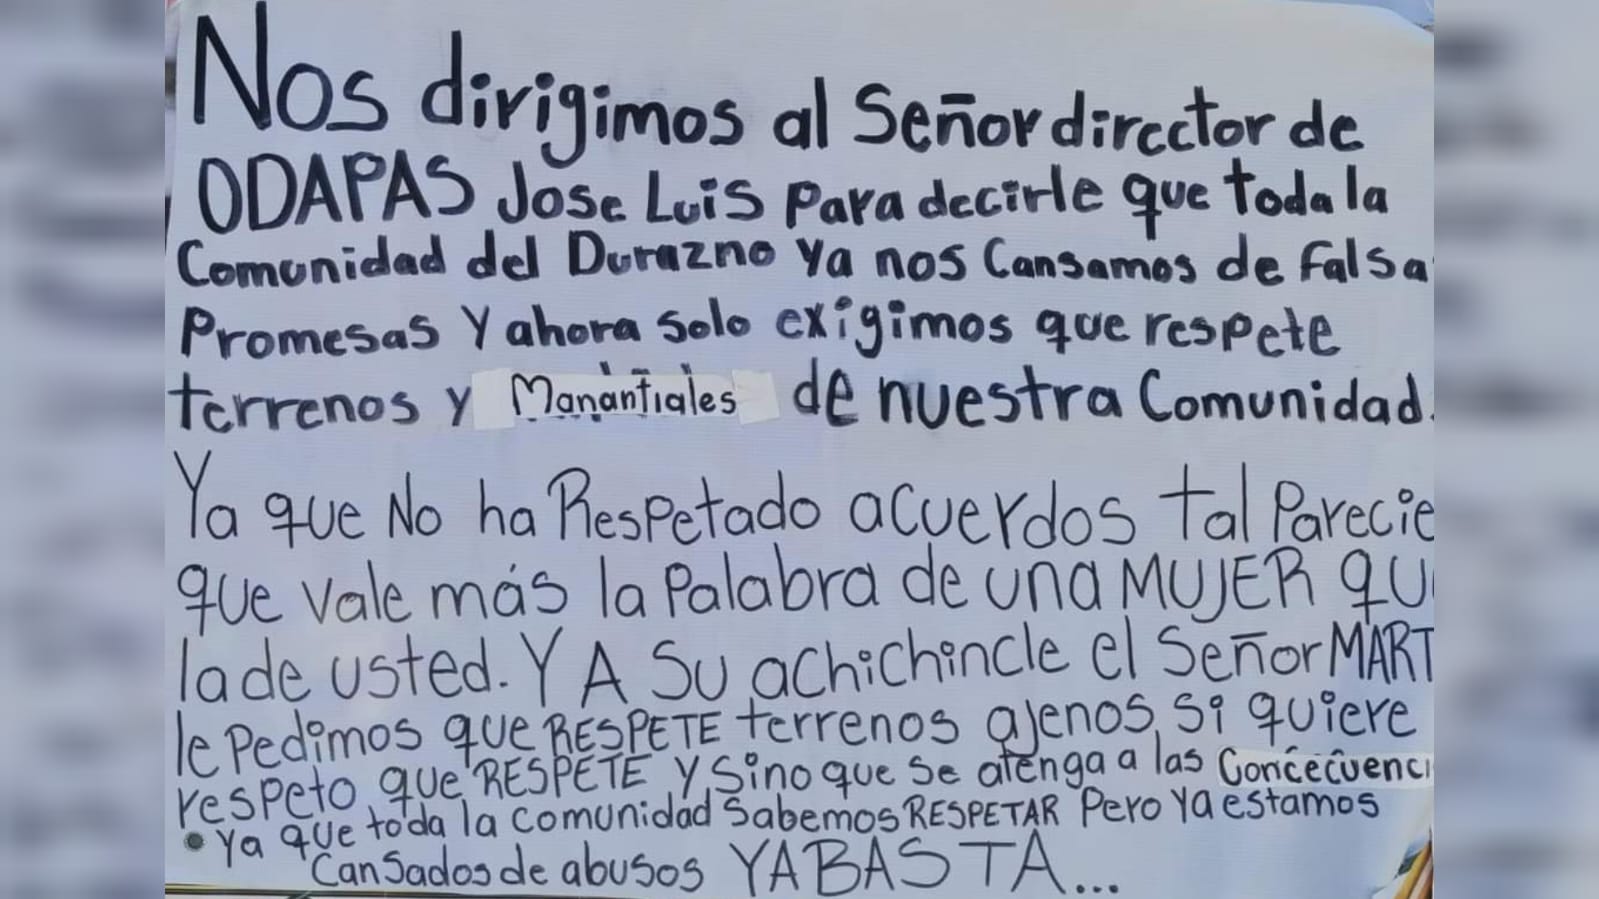 Nos dirigimos al Señor director de
ODAPAS Jose Luis para decirle que toda la
Comunidad del Durazno Ya nos Cansamos de falsa
Promesas Y ahora solo exigimos que respete
terrenos y Manantiales de nuestra Comunidad.
Ya que No ha Respetado acuerdos tal Parecie
que vale más la Palabra de una MUJER QU
la de usted. Y A Su achichincle el Señor MART
le Pedimos que RESPETE terrenos ajenos, Si quiere
respeto que RESPETE Y Sino que se atenga a las Concecuenci
• Ya que toda la comunidad Sabemos RESPETAR Pero Ya estamos
Cansados de abusos YA BASTA...